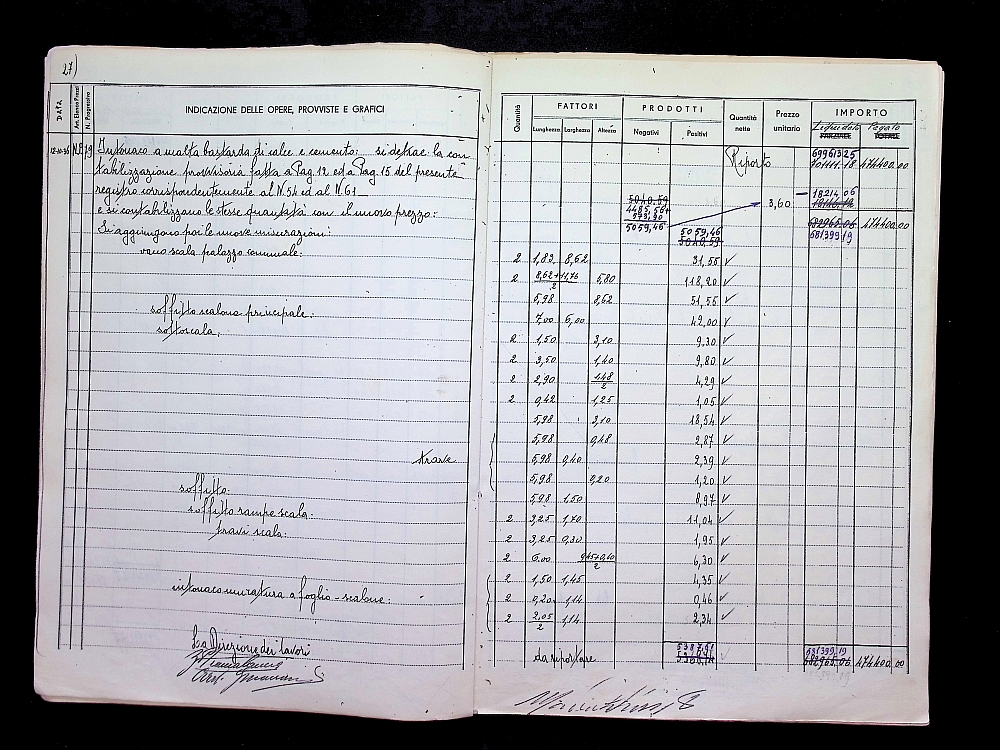 27)
DATA
Art. Elenco Prezzi
N. Progressivo
INDICAZIONE DELLE OPERE, PROVVISTE E GRAFICI
12-10-36 N.E. 79 Intonaco a malta bastarda di calce e cemento: si detrae la con-
tabilizzazione provvisoria fatta a Pag. 12 ed a Pag. 15 del presente
registro corrispondentemente al N. 54 ed al N. 61
e si contabilizzano le stesse quantità con il nuovo prezzo:
Si aggiungono poi le nuove misurazioni:
vano scala palazzo comunale:
soffitto scalone principale:
sottoscala:
trave
soffitto:
soffitto rampe scala:
travi scala:
intonaco muratura a foglio - scalone:
La Direzione dei lavori
Quantità
FATTORI
Lunghezza Larghezza Altezza
PRODOTTI
Negativi Positivi
Quantità nette
Prezzo unitario
IMPORTO
Liquidato Pagato
PARZIALE TOTALE
Riporto 699613 25 474400.00
701111.18
18214 06
5040.59
4485.56+
573,90
3,60
5059,46 5059,46 682965.06 474400.00
5040.59 681399 19
2 1,83 8,62 31,55
2 8,62+11,76 5,80 118,20
2
5,98 8,62 51,55
7,00 6,00 42,00
2 1,50 3,10 9.30
2 3,50 1,40 9,80
2 2,90 1.48 4,29
2
2 0,42 1,25 1,05
5,98 3,10 18,54
5,98 0,48 2,87
5,98 0,40 2,39
5,98 0,20 1,20
5,98 1,50 8,97
2 3,25 1,70 11,04
2 3,25 0,30 1,95
2 6.00 0,45+0,60 6,30
2
2 1,50 1,45 4,35
2 0,20 1,14 0,46
2 2,05 1,14 2,34
2
da riportare 5387,61 681399,19
682965.06 474400.00